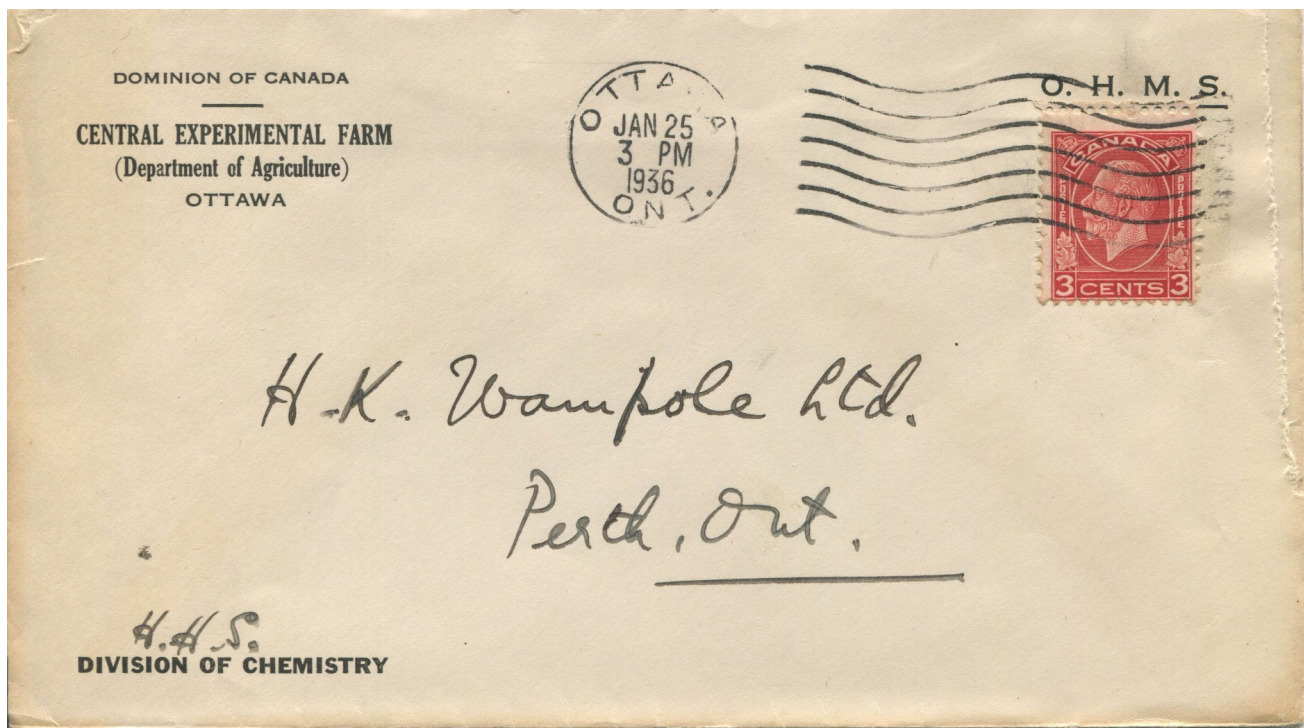 DOMINION OF CANADA
CENTRAL EXPERIMENTAL FARM
(Department of Agriculture)
OTTAWA
OTTAWA
JAN 25
3 PM
1936
ONT.
O. H. M. S.
CANADA
POSTES
POSTAGE
3 CENTS 3
H. K. Wampole Ltd.
Perth, Ont.
H. H. S.
DIVISION OF CHEMISTRY